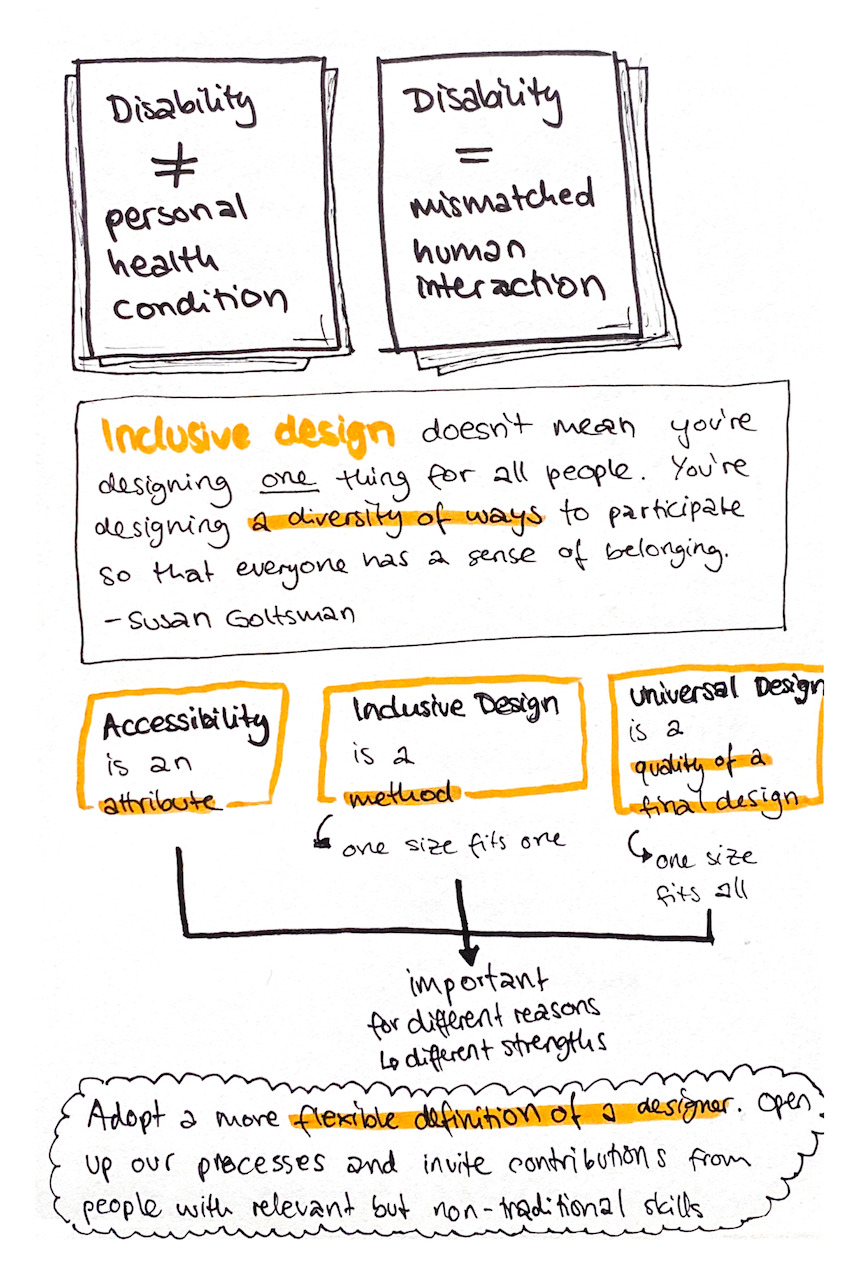 Disability
≠
personal
health
condition
Disability
=
mismatched
human
interaction
Inclusive design doesn't mean you're
designing one thing for all people. You're
designing a diversity of ways to participate
so that everyone has a sense of belonging.
- Susan Goltsman
Accessibility
is an
attribute
Inclusive Design
is a
method
one size fits one
Universal Design
is a
quality of a
final design
one size
fits all
important
for different reasons
↳ different strengths
Adopt a more flexible definition of a designer. Open
up our processes and invite contributions from
people with relevant but non-traditional skills